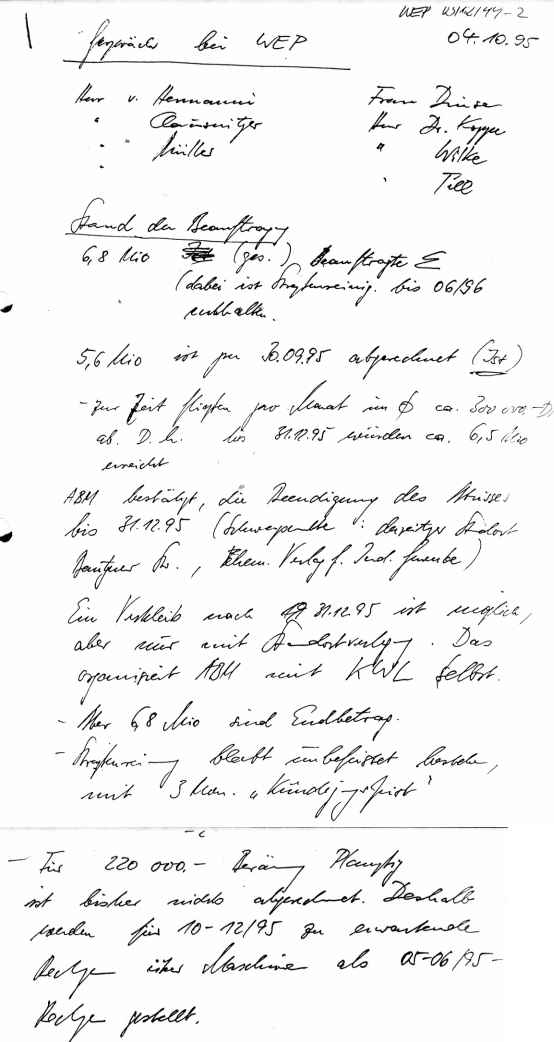 WEP
04.10.95
Gespräch bei WEP
Herr v. Hermanni Frau
" Clausnitzer Herr Dr.
" Müller " Wilke
" Till
Stand der Beauftragung
6,8 Mio (ges.) Beauftragte
(dabei ist Straßenreinig. bis 06/96
enthalten.
5,6 Mio ist per 30.09.95 abgerechnet (Ist)
- zur Zeit fließen pro Monat im Ø ca. 300 000.-
ab. D.h. bis 31.12.95 würden ca. 6,5 Mio
erreicht
ABM bestätigt, die Beendigung des
bis 31.12.95 (Schwerpunkte : derzeitiger Standort
Bautzner Str., ehem. Verlag f. )
Ein Verbleib nach 31.12.95 ist möglich,
aber nur mit Standortverlegung. Das
organisiert ABM mit KWL selbst.
- 6,8 Mio sind Endbetrag.
- Straßenreinigung bleibt unbefristet bestehen,
mit 3 Mon. „Kündigungsfrist"
- Für 220 000.-
ist bisher nichts abgerechnet. Deshalb
werden für 10-12/95 zu erwartende
Rechgen über Maschine als 05-06/95-
Rechgen gestellt.